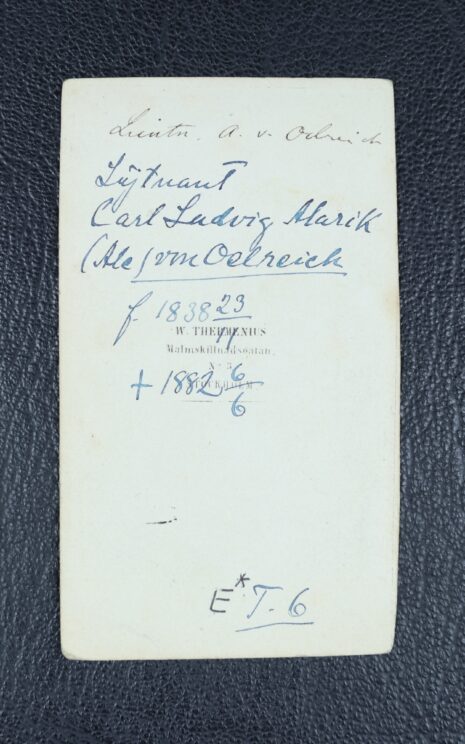 Lieutn. A. v. Oelreich
Löjtnant
Carl Ludvig Alarik
(Ale) von Oelreich
f. 1838 23/11
W. THERMENIUS
Malmskillnadsgatan,
No 5
+ 1882 6/6
STOCKHOLM
E* T. 6